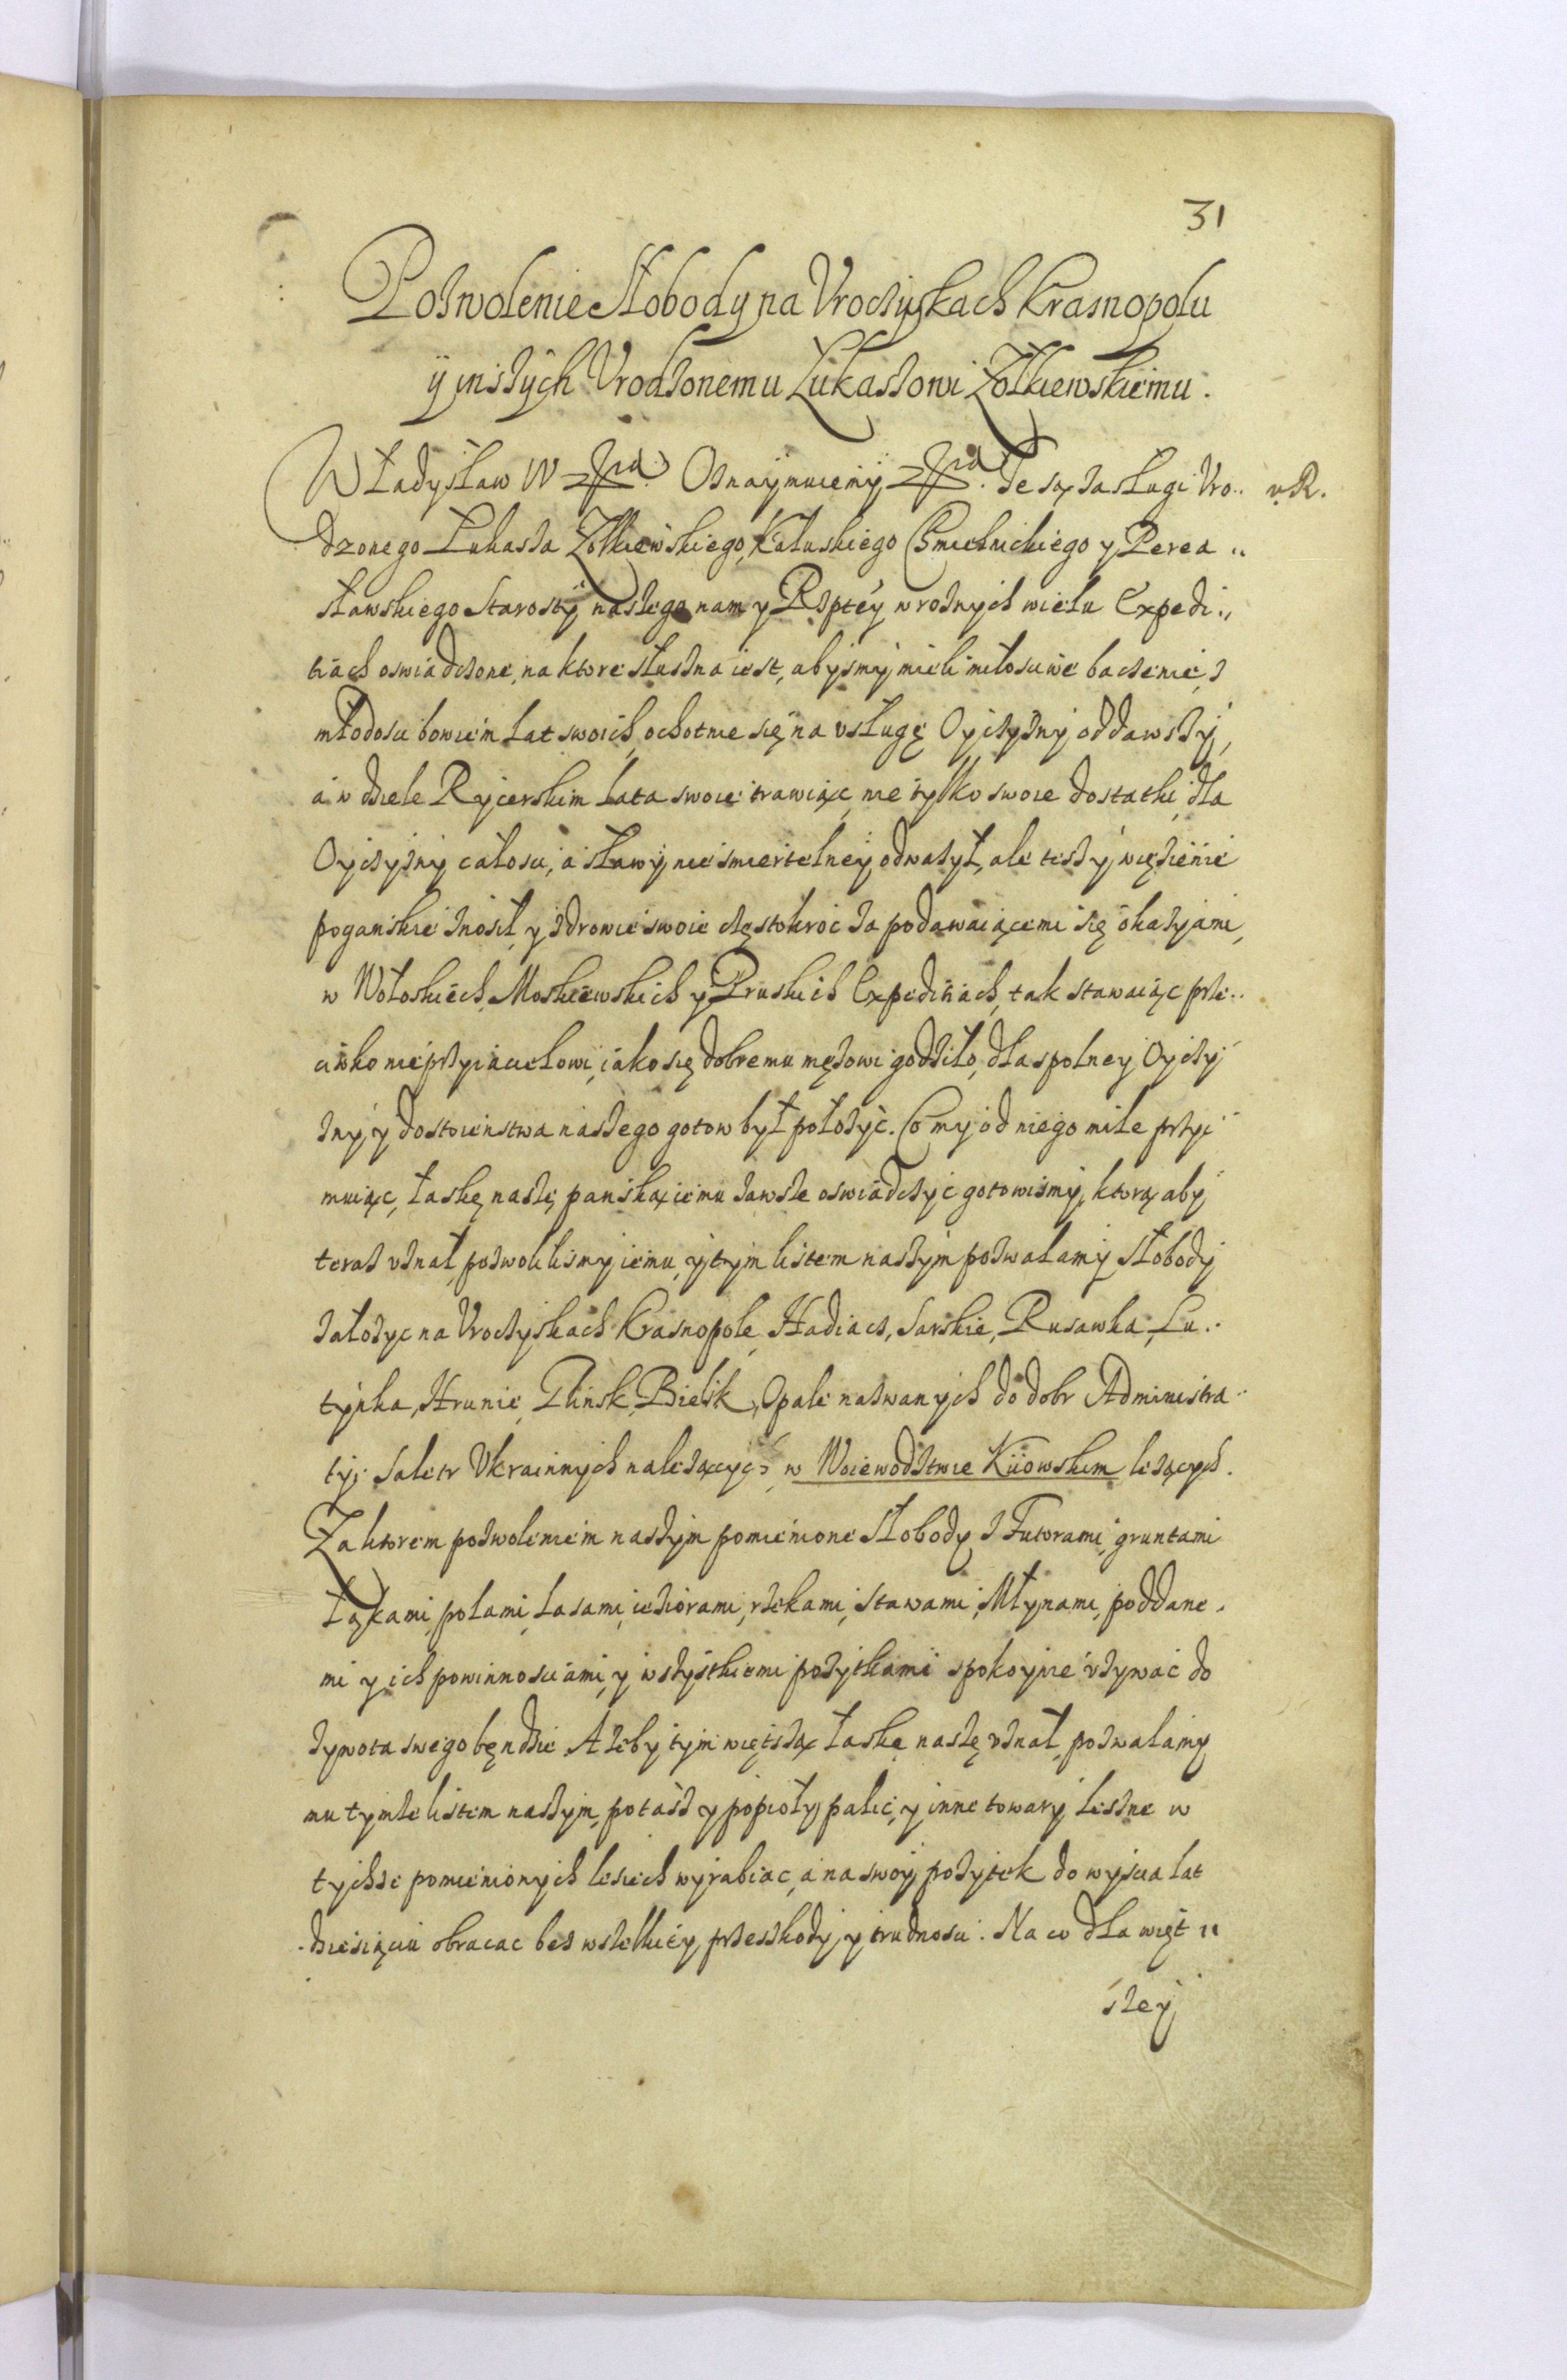 31
Pozwolenie Słobody na Vroczyskach Krasnopolu
ÿ inszych Vrodzonemu Łukaszowi Żołkiewskiemu.
Władysław IV Oznaymuiemy Te są zasługi Vro..
v. R.
dzonego Łukasza Żołkiewskiego, Kałuskiego Chmielnickiego y Perea..
sławskiego Starosty naszego nam y Rzptey w roznych wielu Expedi..
tiach oswiadczone, na ktore słuszna iest, abysmy mieli miłosciwe baczenie, z
młodosci bowiem lat swoich, ochotnie się na vsługę Oyczyzny oddawszy,
a w dziele Rycerskim lata swoie trawiąc, nie tylko swoie dostatki, dla
Oyczyzny całosci, a sławy niesmiertelney odwazył, ale tesz y więzienie
poganskie znosił, y zdrowie swoie częstokroc za podawaiącemi się okazyami,
w Wołoskiech, Moskiewskich y Pruskich Expeditiach, tak stawaiąc prze..
ciwko nieprzyiacielowi, iako się dobremu męzowi godziło, dla spolney Oyczy
zny, y dostoienstwa naszego gotow był połozyc. Co my od niego mile przyi
muiąc, łaskę naszę panską iemu zawsze oswiadczyc gotowismy, ktorą aby
teraz vznał, pozwolilismy iemu, y tym listem naszym pozwalamy słobody
załozyc na Vroczyskach Krasnopole, Hadiacz, Sarskie, Rusawka, Lu..
tynka, Hrunie, Plinsk, Bielsk, Opale nazwanych do dobr Administra..
tyi Saletr Vkrainnych nalezących, w Woiewodztwie Kiiowskim lezących.
Za ktorem pozwoleniem naszym pomienione Słobody z Futorami, gruntami
łąkami, polami, lasami, ieziorami, rzekami, stawami, Młynami, poddane.
mi y ich powinnosciami, y wszystkiemi pozytkami spokoynie vzywac do
zywota swego będzie. A zeby tym więtszą łaskę naszę vznał, pozwalamy
mu tymze listem naszym, potasz y popioły palic, y inne towary lesne w
tychze pomienionych lesiech wyrabiac, a na swoy pozytek do wyscia lat
dziesiąciu obracac bez wszelkiey przeszkody y trudnosci. Na co dla więt..
szey